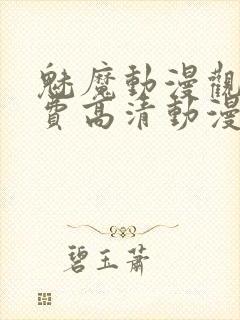 魅魔動漫觀
費高清動漫
碧玉蕭